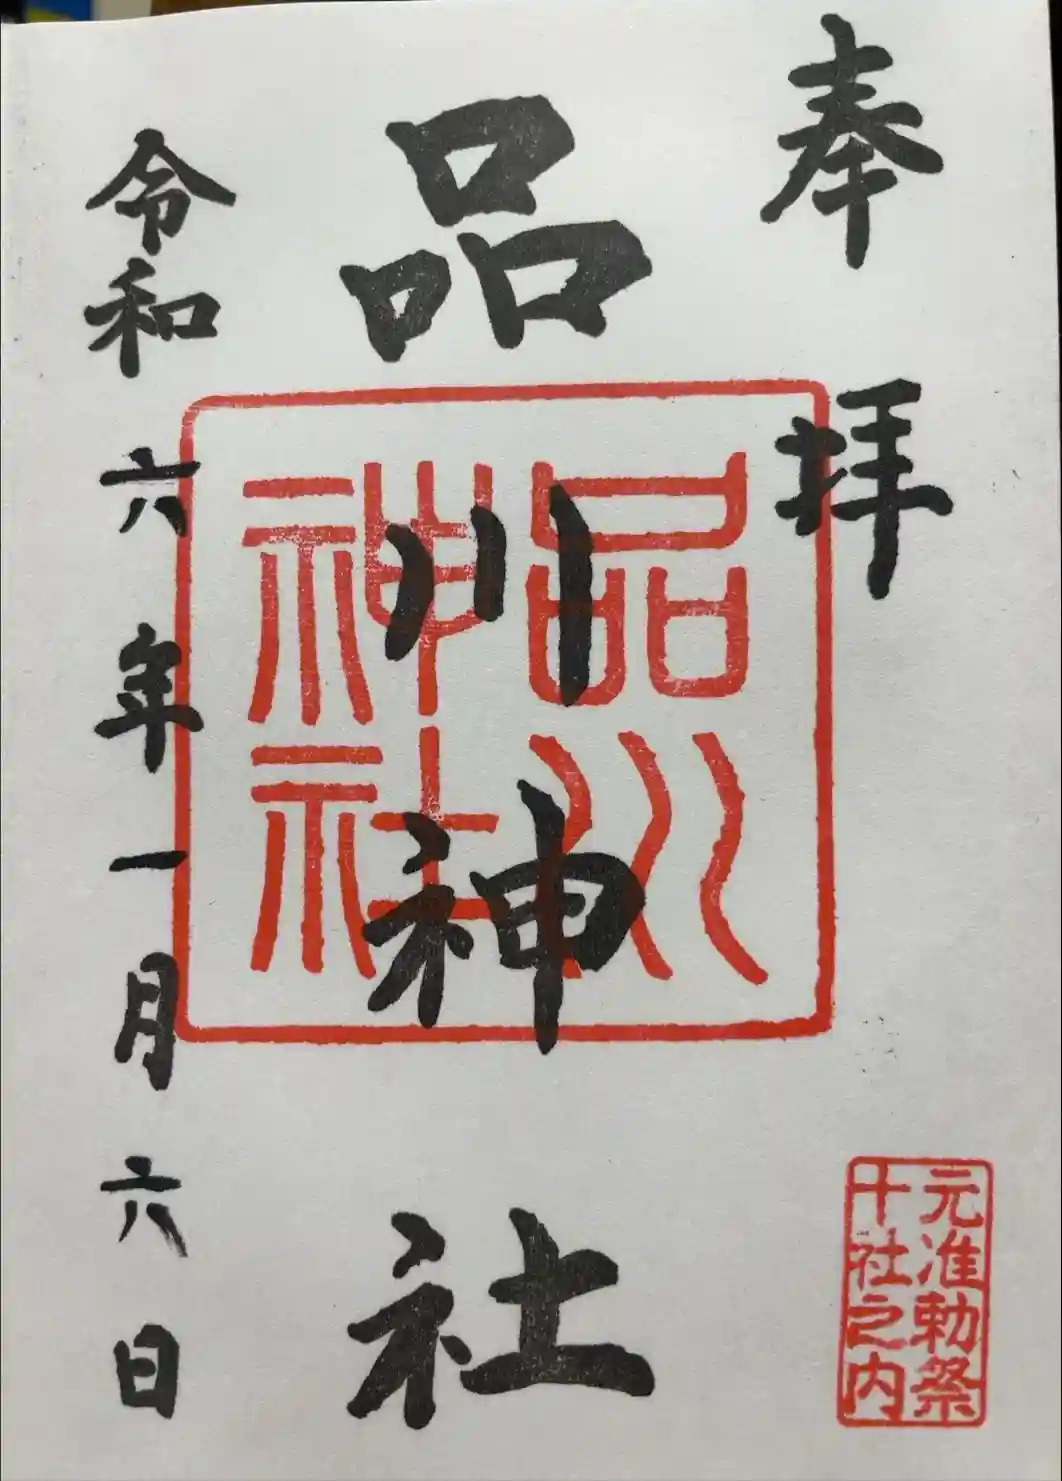 奉拝
品川神社
品川神社
元准勅祭
十社之内
令和六年一月六日